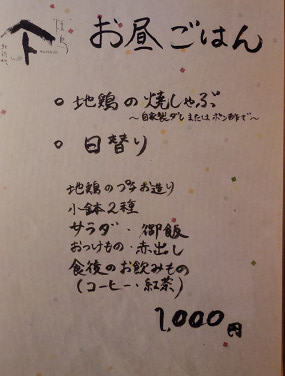 お昼ごはん
○ 地鶏の焼しゃぶ
～自家製ダシまたはポン酢で～
○ 日替り
地鶏のプチお造り
小鉢2種
サラダ・御飯
おつけもの・赤出し
食後のお飲みもの
(コーヒー・紅茶)
1,000円